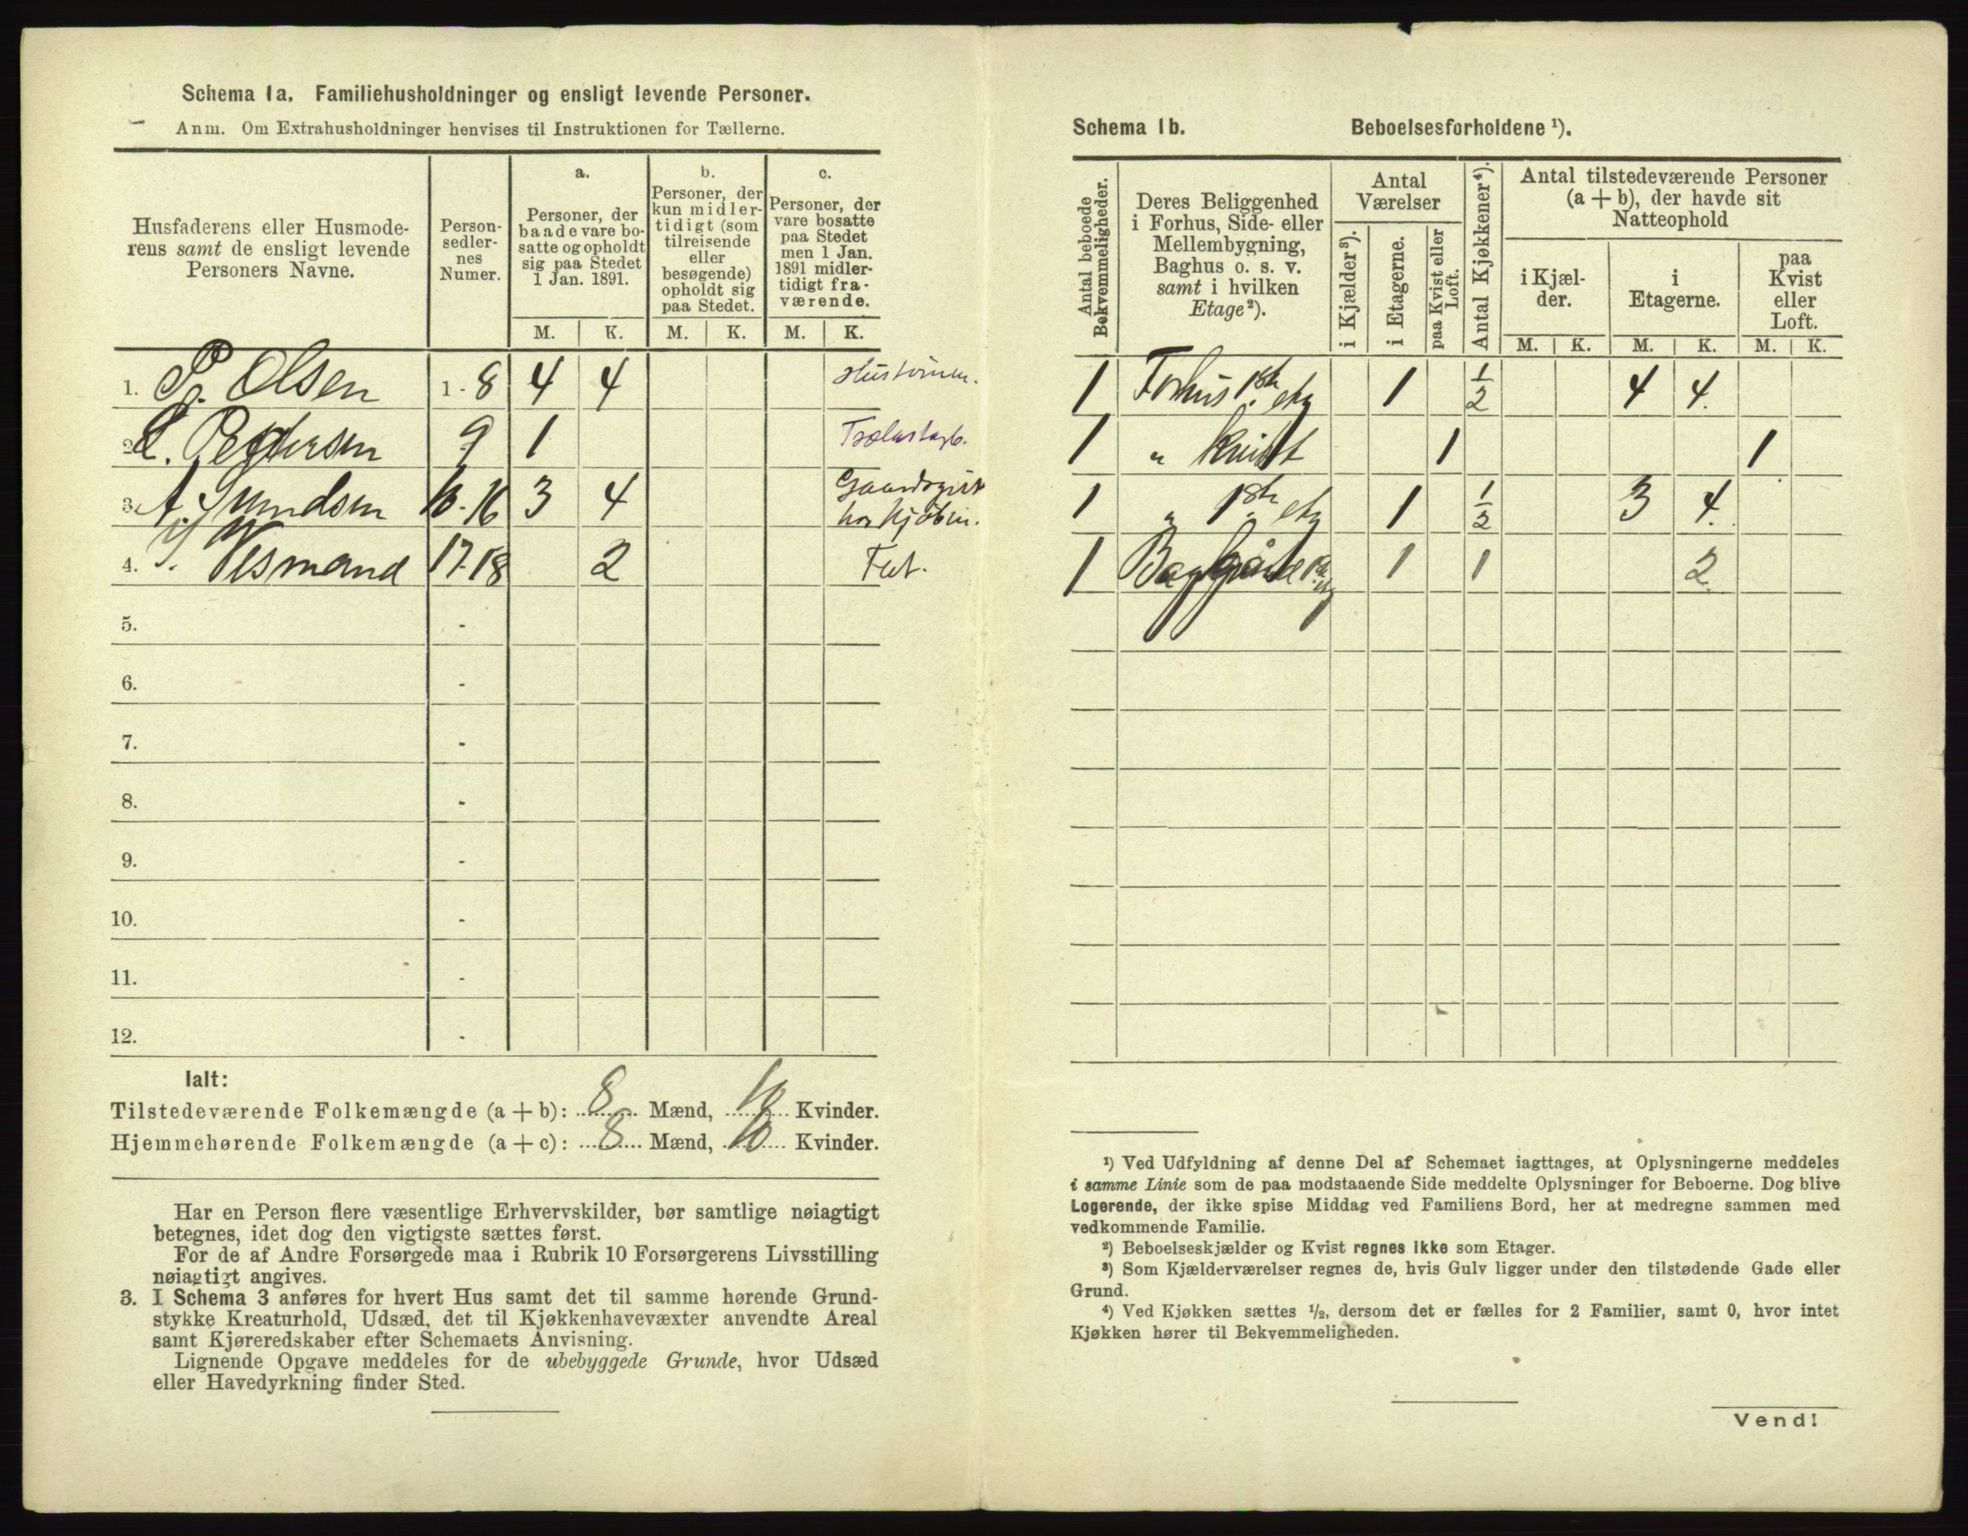 Schema 1a. Familiehusholdninger og ensligt levende Personer.
Anm. Om Extrahusholdninger henvises til Instruktionen for Tællerne.
Husfaderens eller Husmoderens samt de ensligt levende Personers Navne.
Personsedlernes Numer.
a.
Personer, der baade vare bosatte og opholdt sig paa Stedet 1 Jan. 1891.
b.
Personer, der kun midlertidigt (som tilreisende eller besøgende) opholdt sig paa Stedet.
c.
Personer, der vare bosatte paa Stedet men 1 Jan. 1891 midlertidigt fraværende.
M. K. M. K. M. K.
1. P. Olsen 1-8 4 4
2. L. Pedersen 9 1
3. A. Gundsen 10-16 3 4
4. 17-18 2
5. -
6. -
7. -
8. -
9. -
10. -
11. -
12. -
Ialt:
Tilstedeværende Folkemængde (a + b): 8 Mænd, 10 Kvinder.
Hjemmehørende Folkemængde (a + c): 8 Mænd, 10 Kvinder.
Har en Person flere væsentlige Erhvervskilder, bør samtlige nøiagtigt
betegnes, idet dog den vigtigste sættes først.
For de af Andre Forsørgede maa i Rubrik 10 Forsørgerens Livsstilling
nøiagtigt angives.
3. I Schema 3 anføres for hvert Hus samt det til samme hørende Grund-
stykke Kreaturhold, Udsæd, det til Kjøkkenhavevæxter anvendte Areal
samt Kjøreredskaber efter Schemaets Anvisning.
Lignende Opgave meddeles for de ubebyggede Grunde, hvor Udsæd
eller Havedyrkning finder Sted.
Schema 1b. Beboelsesforholdene ¹).
Antal beboede Bekvemmeligheder.
Deres Beliggenhed i Forhus, Side- eller Mellembygning, Baghus o. s. v. samt i hvilken Etage²).
Antal Værelser
i Kjælder³).
i Etagerne.
paa Kvist eller Loft.
Antal Kjøkkener⁴).
Antal tilstedeværende Personer (a + b), der havde sit Natteophold
i Kjælder.
i Etagerne.
paa Kvist eller Loft.
M. K. M. K. M. K.
1 Forhus 1ste etg 1 1/2 4 4.
1 " kvist 1 1
1 " 1ste etg 1 1/2 3 4.
1 1 1 2.
¹) Ved Udfyldning af denne Del af Schemaet iagttages, at Oplysningerne meddeles
i samme Linie som de paa modstaaende Side meddelte Oplysninger for Beboerne. Dog blive
Logerende, der ikke spise Middag ved Familiens Bord, her at medregne sammen med
vedkommende Familie.
²) Beboelseskjælder og Kvist regnes ikke som Etager.
³) Som Kjælderværelser regnes de, hvis Gulv ligger under den tilstødende Gade eller
Grund.
⁴) Ved Kjøkken sættes ½, dersom det er fælles for 2 Familier, samt 0, hvor intet
Kjøkken hører til Bekvemmeligheden.
Vend!